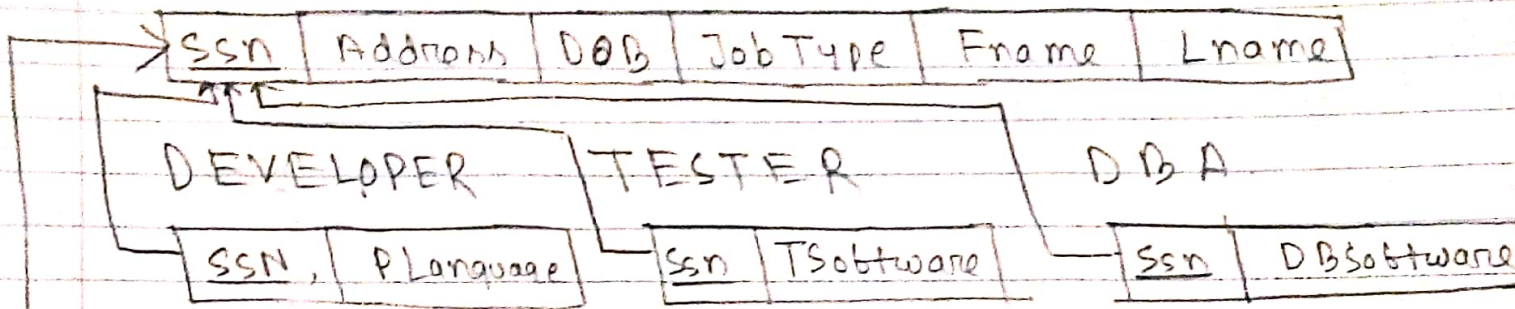 Ssn Address DOB Job Type Fname Lname
DEVELOPER TESTER DBA
SSN, PLanguage Ssn TSoftware Ssn DBSoftware